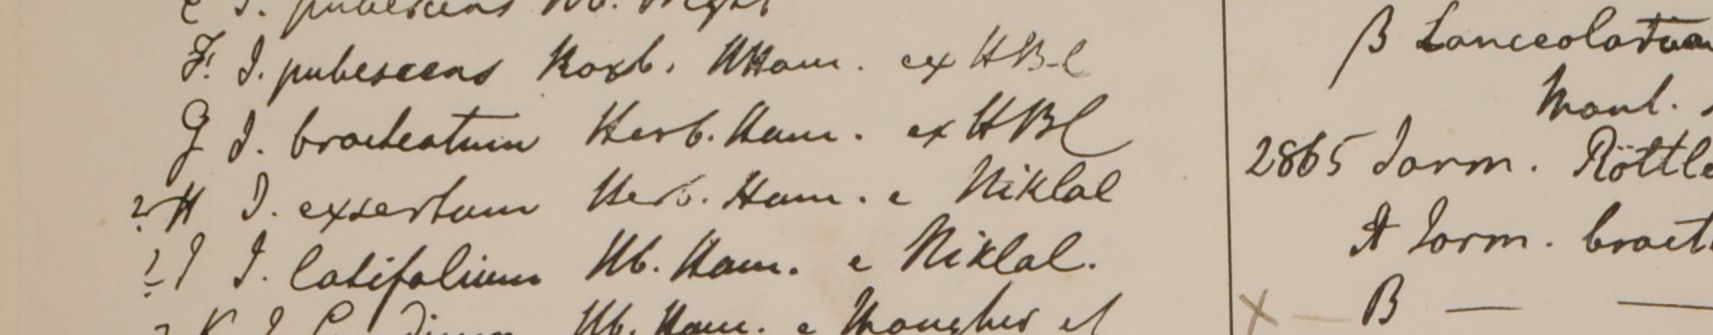 E J. pubescens Hb. Wight
F. J. pubescens Roxb. HHam. ex HB-l
G J. bracteatum Herb. Ham. ex HBl
? H J. exsertum Herb. Ham. e Niklal
? I J. latifolium Hb. Ham. e Niklal.
? K J. Hb. Ham. e et
β Lanceolatum
Mont.
2865 Jasm. Röttle
A Jasm. bract
× B — —